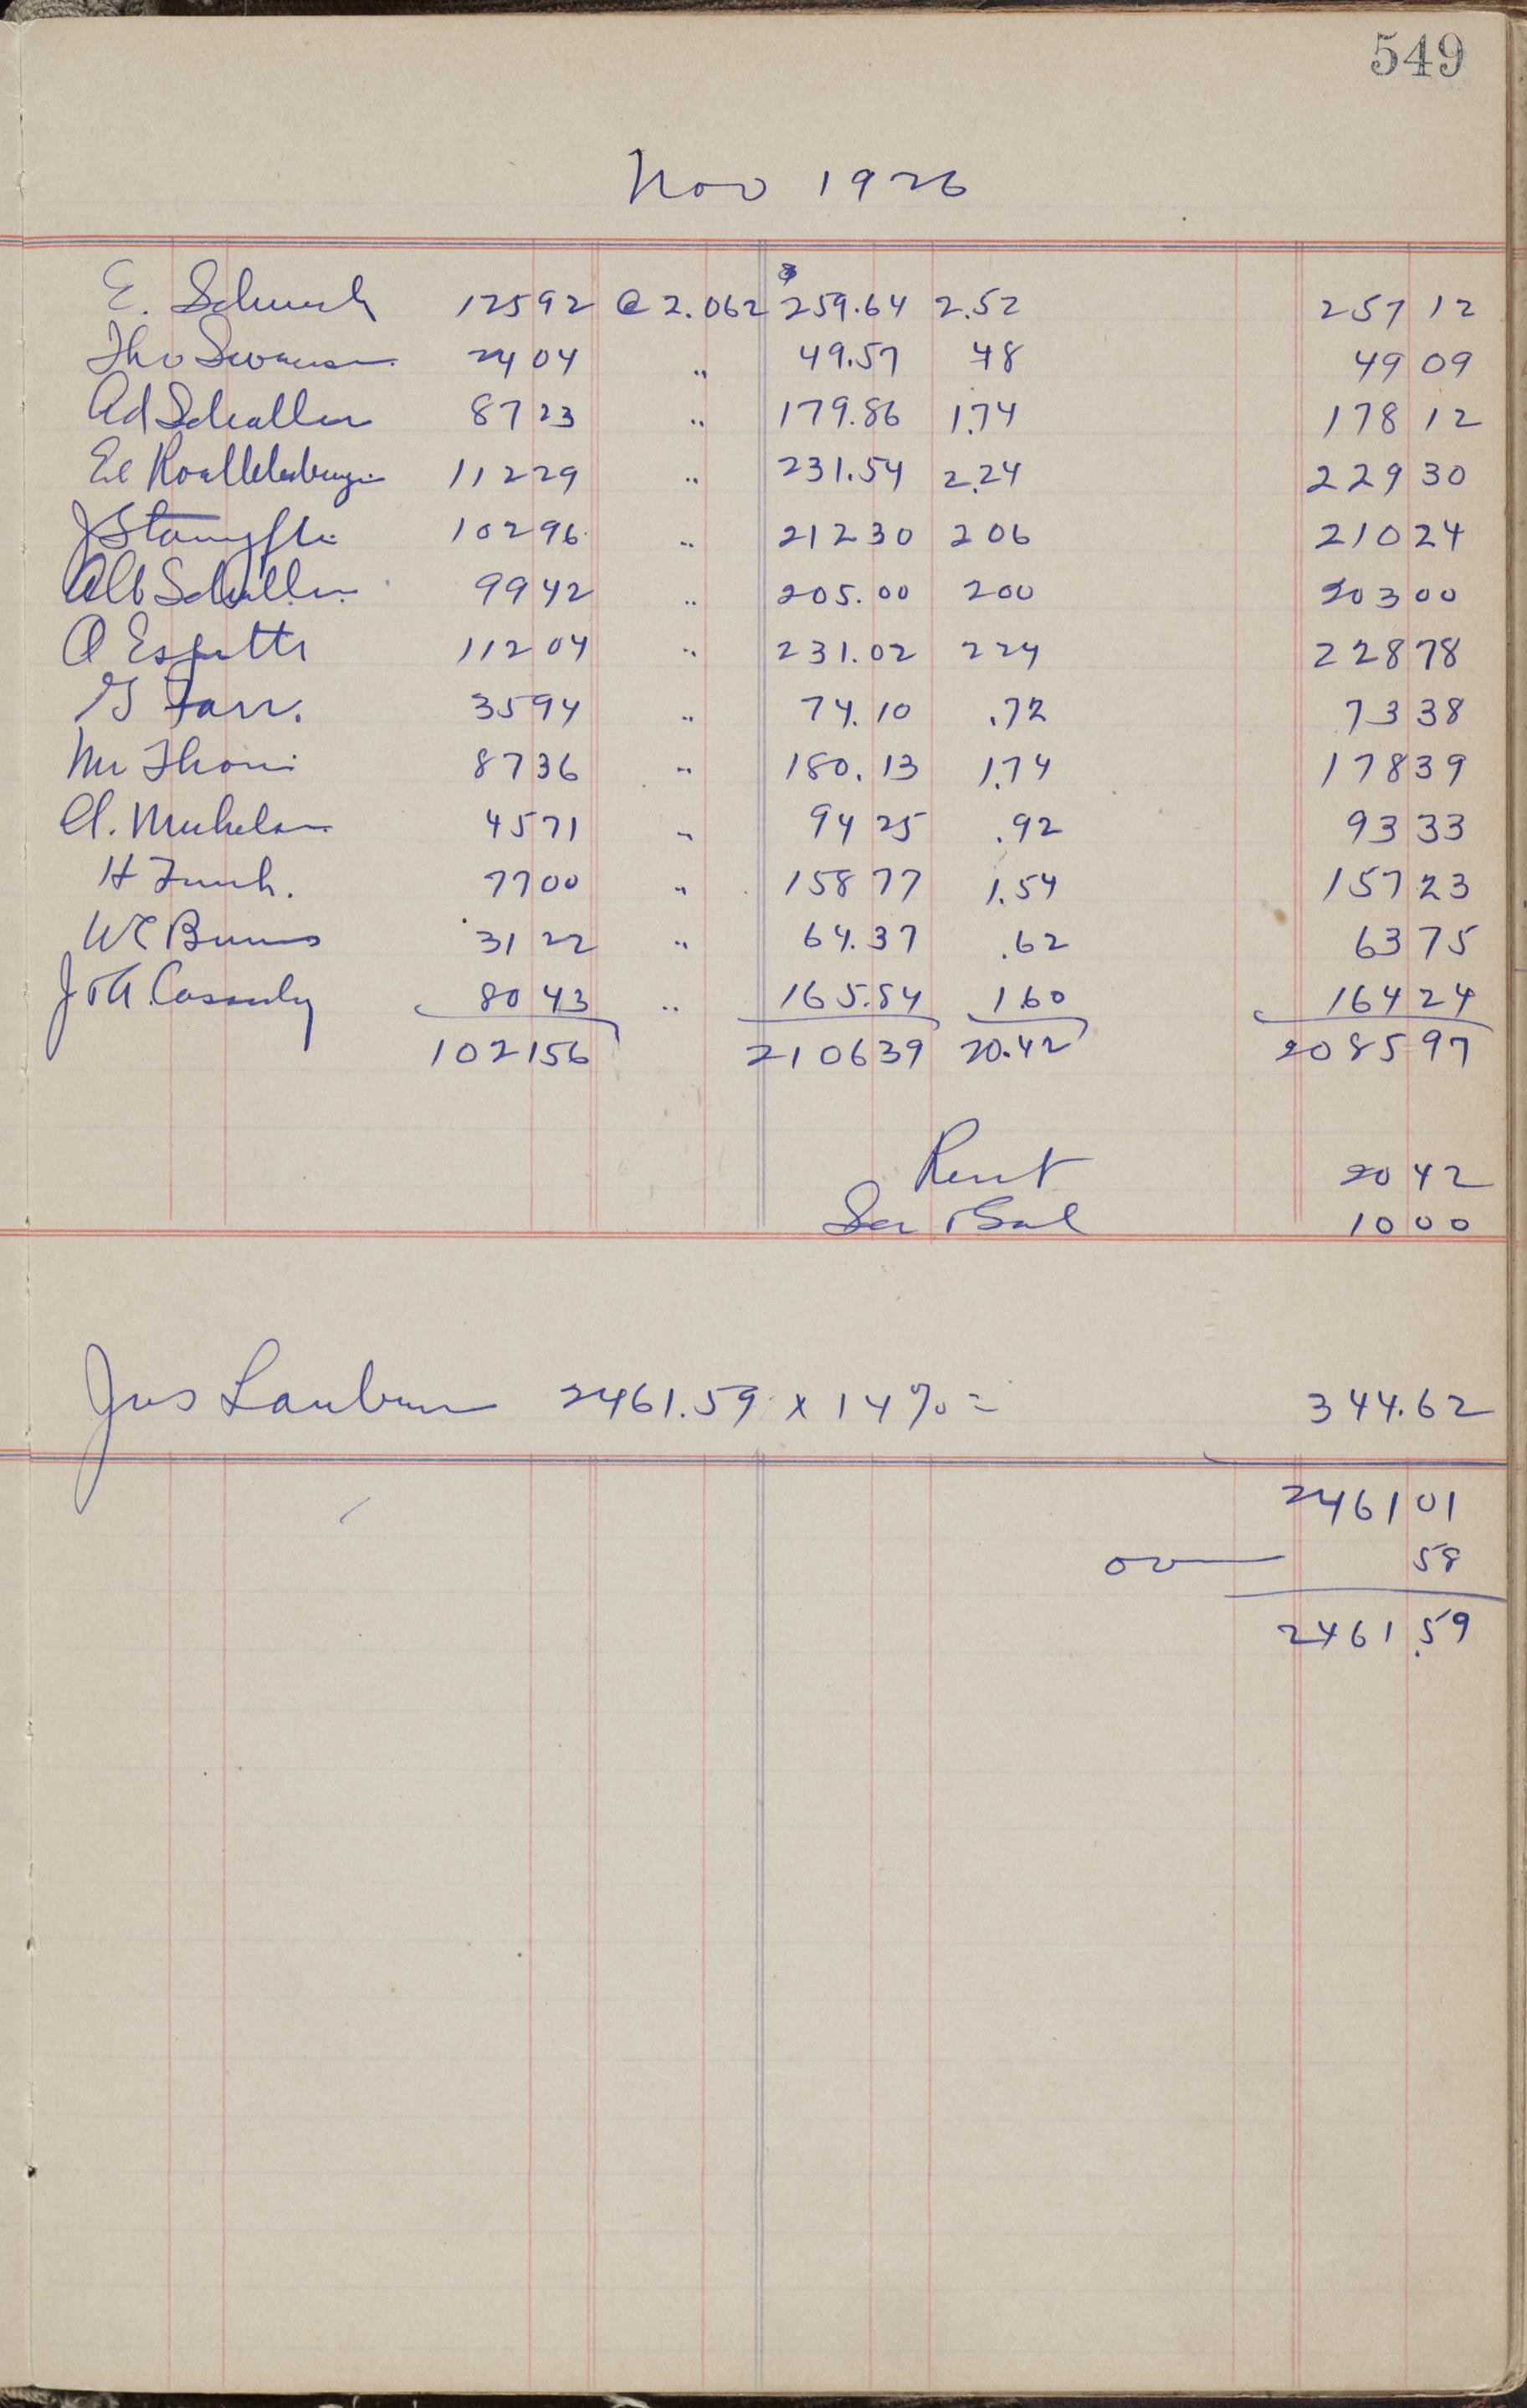 549
Nov 1926
E. Schurch 12592 @ 2.062 $ 259.64 2.52 257 12
Tho Swanson 2404 " 49.57 48 49 09
Ad Schaller 8723 " 179.86 1.74 178 12
Ed 11229 " 231.54 2.24 229 30
J Stampfli 10296 " 212 30 2 06 210 24
Alb Schaller 9942 " 205.00 200 203 00
O Espitti 11204 " 231.02 224 228 78
G Farr. 3594 " 74.10 .72 73 38
Thoni 8736 " 180.13 1.74 178 39
4571 " 94 25 .92 93 33
H 7700 " 158 77 1.54 157 23
WE Burns 3122 " 64.37 .62 63 75
J & A. Cassidy 8043 " 165.84 1.60 164 24
102156 2106 39 20.42 2085 97
Rent 20 42
Sec Sal 10 00
Jos Laubrun 2461.59 x 14% = 344.62
2461 01
ov 58
2461.59